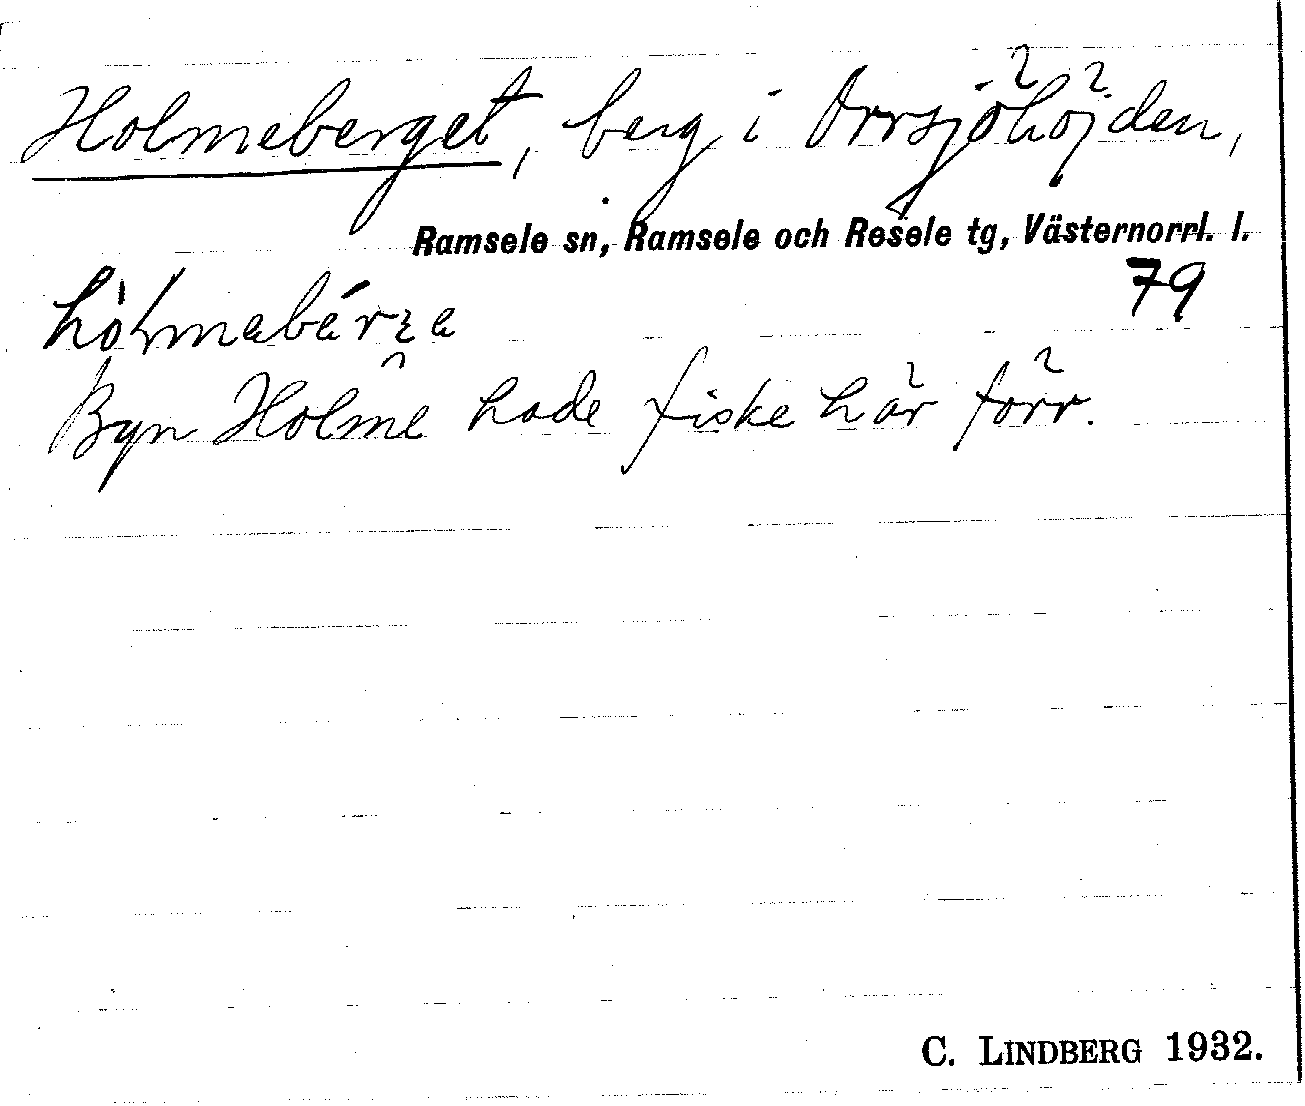 Holmeberget, berg i Orrsjöhöjden,
Ramsele sn, Ramsele och Resele tg, Västernorrl. l.
79
hòlmabérʒa
Byn Holme hade fiske här förr.
C. LINDBERG 1932.